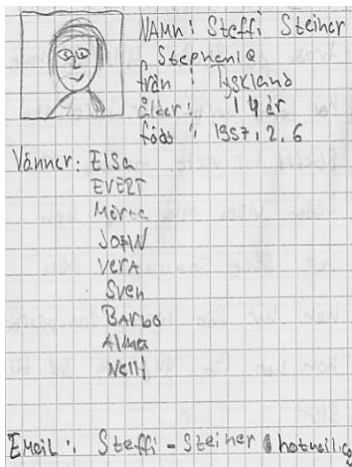 NAMN: Steffi Steiner
Stephenie
från: Tyskland
ålder: 14 år
född: 1957.2.6
Vänner: Elsa
EVERT
Märta
JOHN
VerA
Sven
BArbo
Alma
Nelli
EMaiL: Steffi-Steiner@hotmail.co